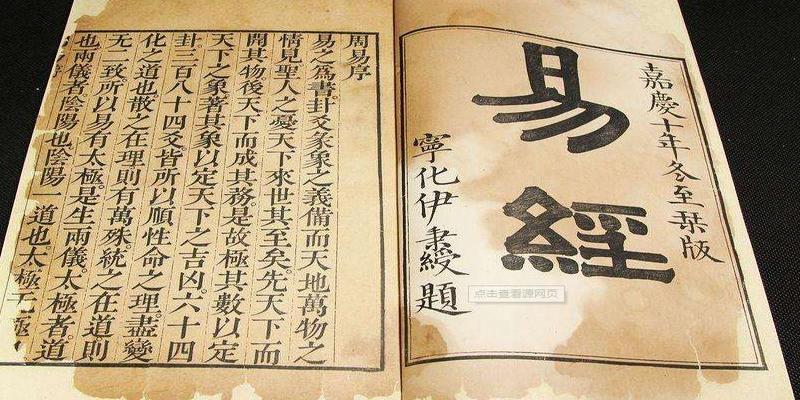 嘉慶十年冬至栞版
易經
寧化伊秉綬題
点击查看源网页
周易序
易之為書卦爻彖象之義備而天地萬物之
情見聖人之憂天下來世其至矣。先天下而
開其物後天下而成其務。是故極其數以定
天下之象著其象以定天下之吉凶六十四
卦三百八十四爻。皆所以順性命之理。盡變
化之道也散之在理則有萬殊。統之在道則
无一致所以易有太極。是生兩儀。太極者。道
也兩儀者陰陽也陰陽一道也太極无極